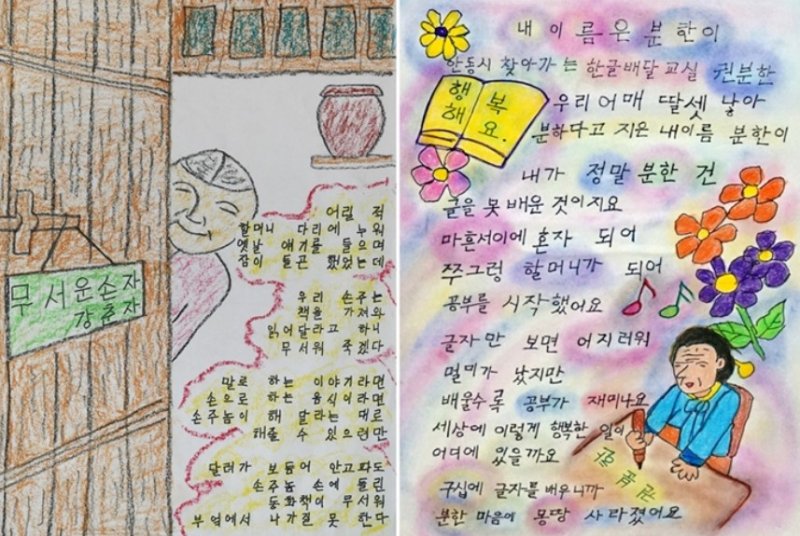 무서운손자
강춘자
어릴 적
할머니 다리에 누워
옛날 얘기를 들으며
잠이 들곤 했었는데
우리 손주는
책을 가져와
읽어달라고 하니
무서워 죽겠다
말로 하는 이야기라면
손으로 하는 음식이라면
손주놈이 해 달라는 대로
해줄 수 있으련만
달려가 보듬어 안고파도
손주놈 손에 들린
동화책이 무서워
부엌에서 나가질 못 한다
내 이름은 분한이
안동시 찾아가는 한글배달교실 권분한
행복
해요.
우리어매 딸셋 낳아
분하다고 지은 내이름 분한이
내가 정말 분한 건
글을 못 배운 것이지요
마흔서이에 혼자 되어
쭈그렁 할머니가 되어
공부를 시작했어요
글자만 보면 어지러워
멀미가 났지만
배울수록 공부가 재미나요
세상에 이렇게 행복한 일이
어디에 있을까요
구십에 글자를 배우니까
분한 마음이 몽땅 사라졌어요